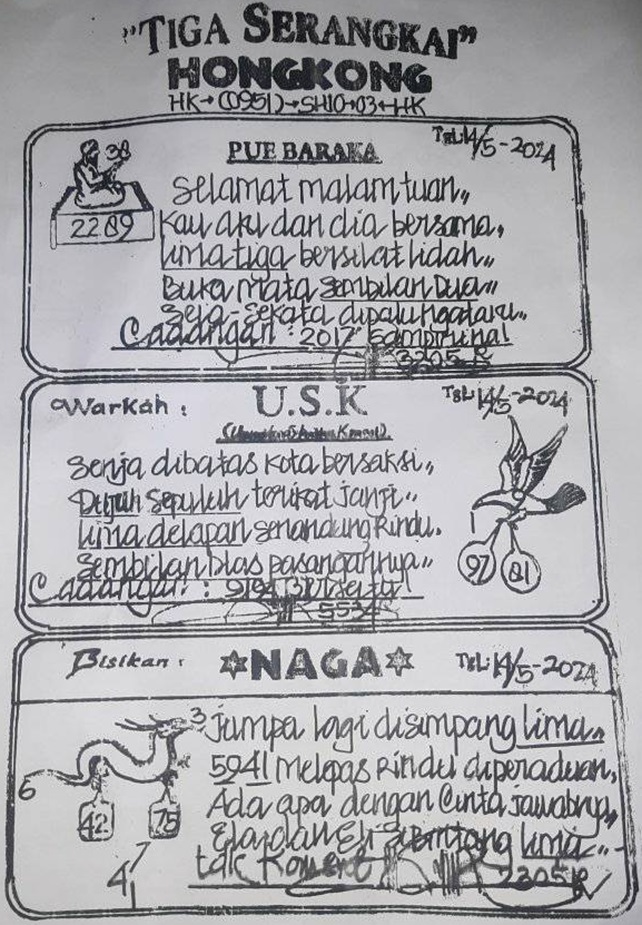 "TIGA SERANGKAI"
HONGKONG
HK→(0951)→SHIO→03←HK
PUE BARAKA
TGL:14/5-2024
38
2289
selamat malam tuan,,
kau aku dan dia bersama,
lima tiga bersilat lidah,,
Buka mata sembilan Dua,,
Seia-Sekata
Cadangan : 2017
3205
Warkah :
U.S.K
TGL:14/5-2024
senja dibatas kota bersaksi,,
Tujuh sepuluh terikat janji,,
lima delapan senandung Rindu.
Sembilan blas pasangannya,,
Cadangan : 9194
5534
97
81
Bisikan :
NAGA
TGL:14/5-2024
3
6
42
75
4
jumpa lagi disimpang lima,,
5941 Melepas Rindu diperaduan,
Ada apa dengan Cinta jawabnya,,
lima
tak
2305